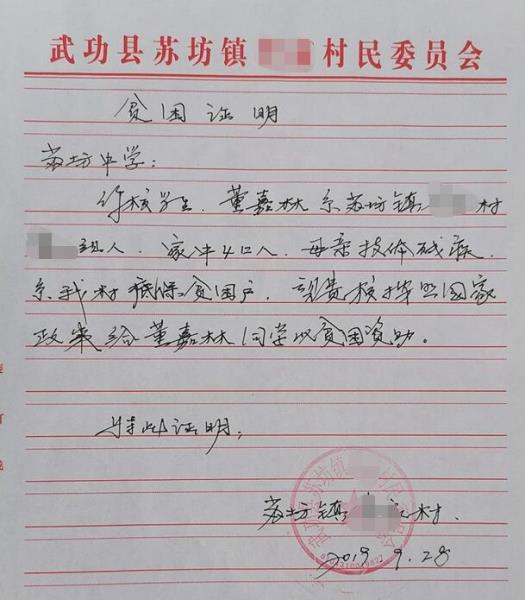 武功县苏坊镇 村民委员会
贫困证明
苏坊中学:
你校学生、董嘉林系苏坊镇 村
组人、家中4口人、母亲肢体残疾、
系我村低保贫困户、 贵校按照国家
政策给董嘉林同学以贫困资助。
特此证明;
苏坊镇 村、
2019 9.28
武功县苏坊镇 村民委员会